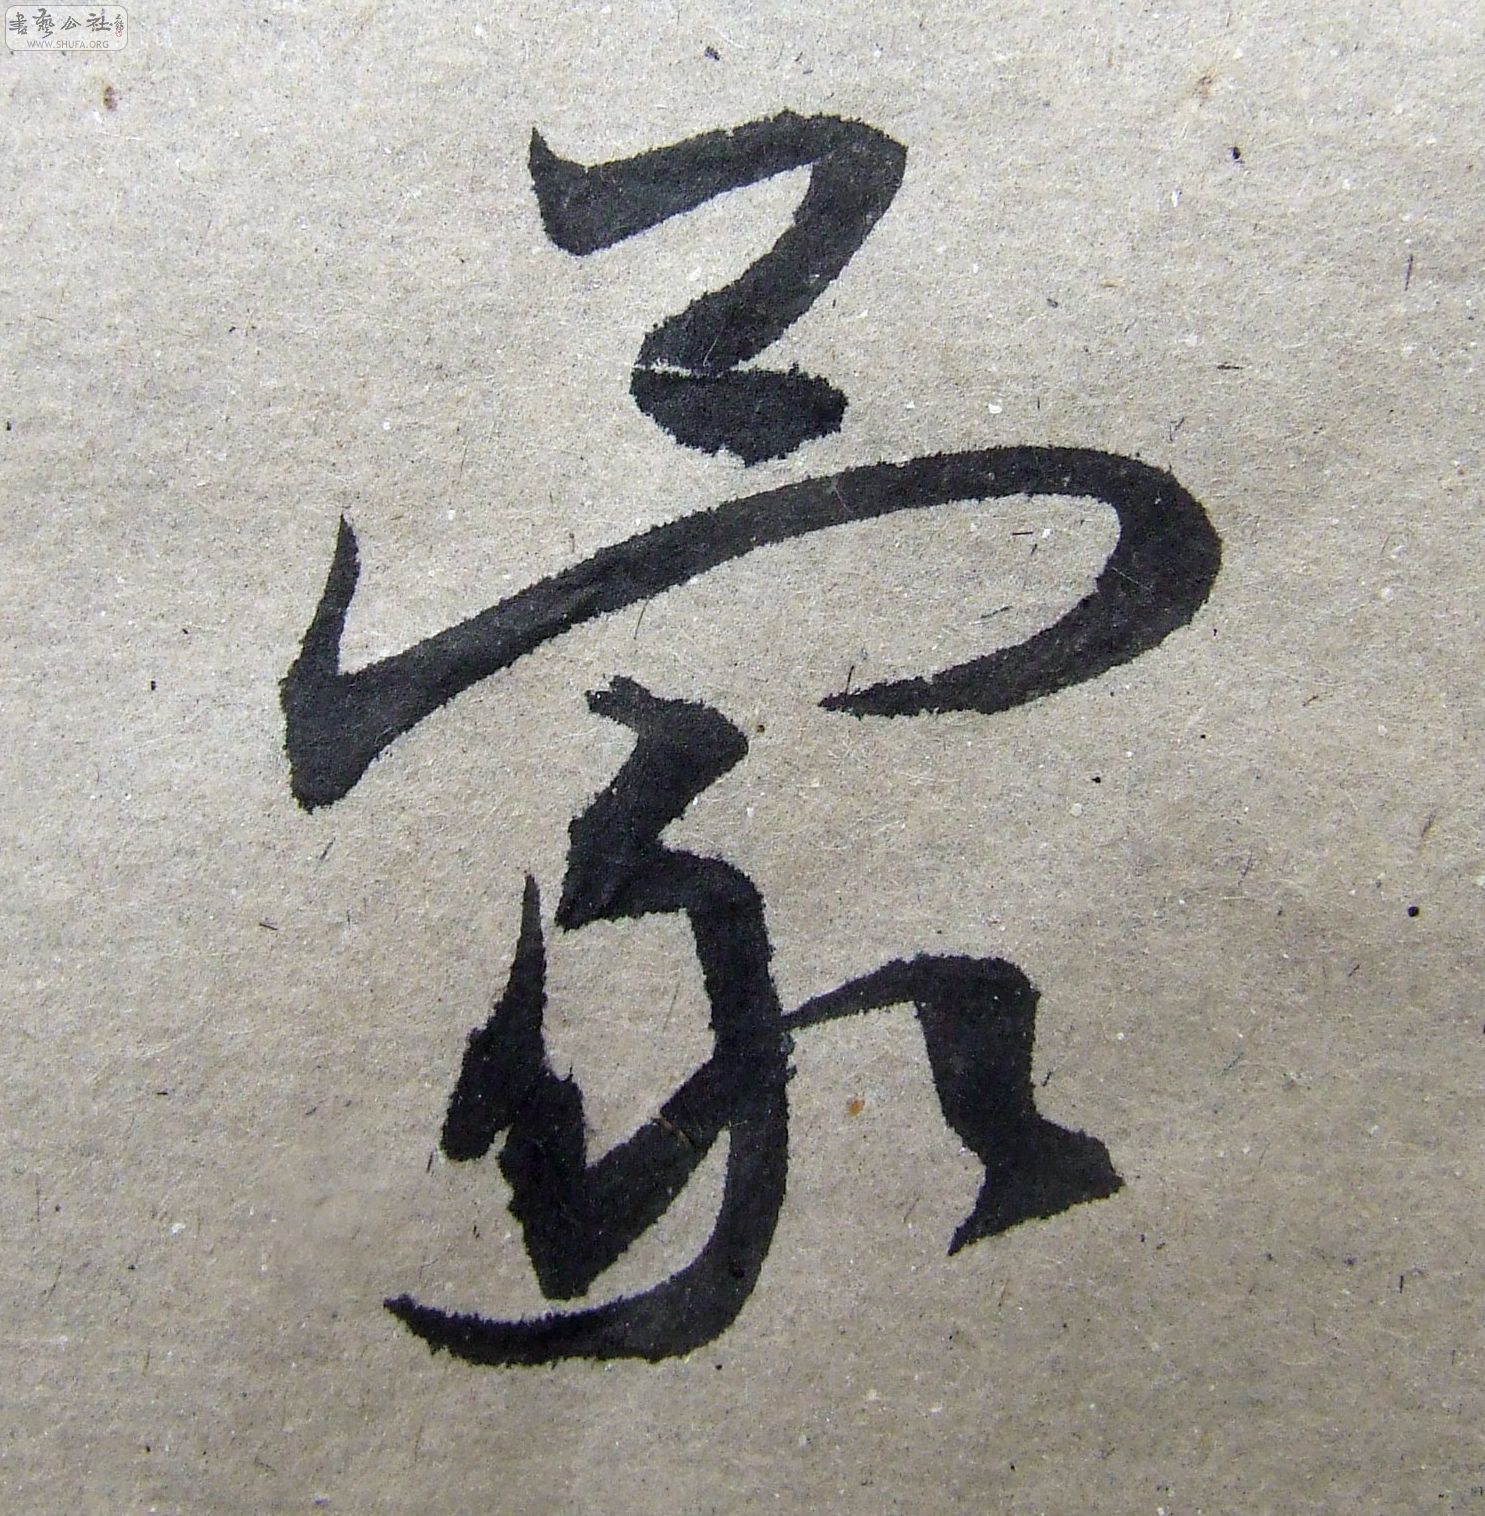 書藝公社
WWW.SHUFA.ORG
豪